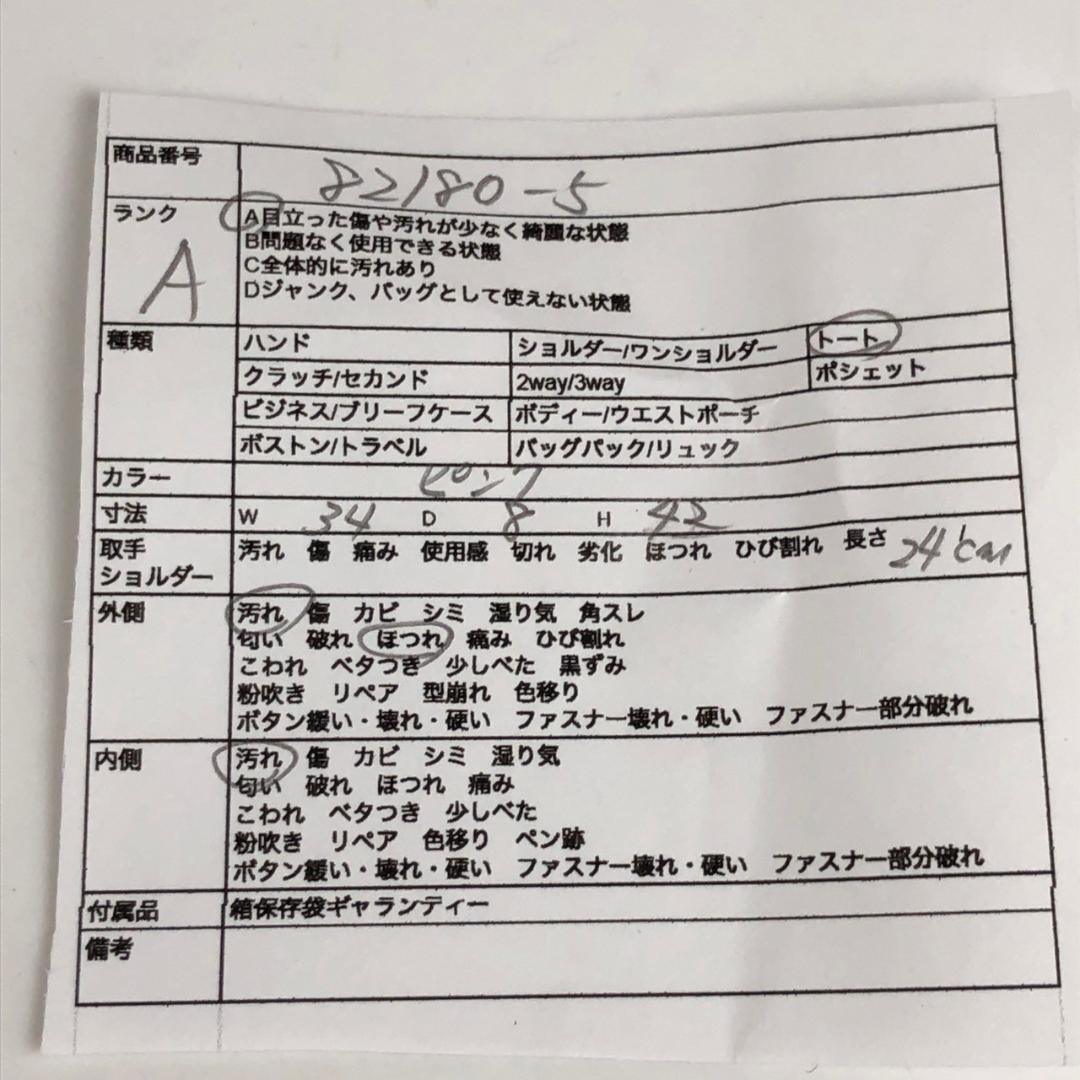 商品番号 82180-5
ランク A目立った傷や汚れが少なく綺麗な状態
B問題なく使用できる状態
A C全体的に汚れあり
Dジャンク、バッグとして使えない状態
種類 ハンド ショルダー/ワンショルダー トート
クラッチ/セカンド 2way/3way ポシェット
ビジネス/ブリーフケース ボディー/ウエストポーチ
ボストン/トラベル バッグパック/リュック
カラー ピンク
寸法 W 34 D 8 H 42
取手 汚れ 傷 痛み 使用感 切れ 劣化 ほつれ ひび割れ 長さ 24cm
ショルダー
外側 汚れ 傷 カビ シミ 湿り気 角スレ
匂い 破れ ほつれ 痛み ひび割れ
こわれ ベタつき 少しべた 黒ずみ
粉吹き リペア 型崩れ 色移り
ボタン緩い・壊れ・硬い ファスナー壊れ・硬い ファスナー部分破れ
内側 汚れ 傷 カビ シミ 湿り気
匂い 破れ ほつれ 痛み
こわれ ベタつき 少しべた
粉吹き リペア 色移り ペン跡
ボタン緩い・壊れ・硬い ファスナー壊れ・硬い ファスナー部分破れ
付属品 箱保存袋ギャランティー
備考